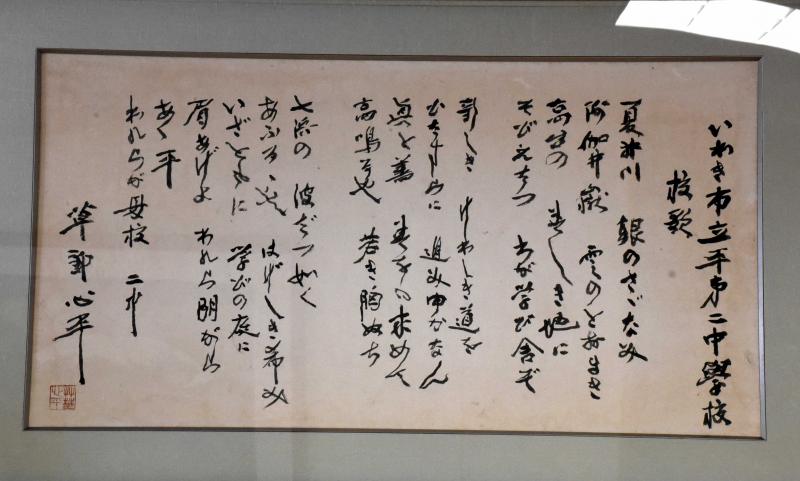 いわき市立平第二中學校
校歌
夏井川 銀のさざなみ
閼伽井嶽 雲のとおまき
高台の 美しき地に
そびえたつ わが学び舎ぞ
新しき けわしき道を
ひたすらに 進みゆかなん
眞と善 美を 求めて
高鳴るや 若き胸ぬち
七浜の 波だつ如く
あふるゝ はげしき希み
いざともに 学びの庭に
眉あげよ われら朋がら
あゝ平
われらが母校 二中
草野心平